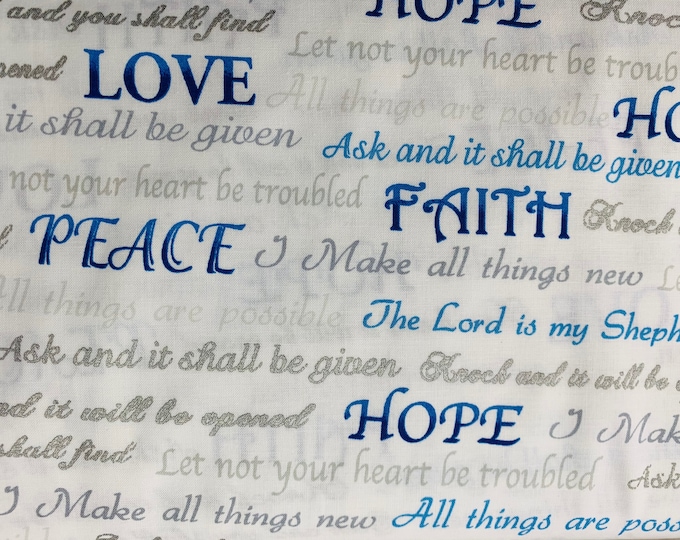 and you shall find HOPE Knock
Let not your heart be troub
opened LOVE All things are possible
it shall be given HO
Ask and it shall be given
not your heart be troubled FAITH Knock
PEACE I Make all things new Le
All things are possible The Lord is my Sheph
Ask and it shall be given Knock and it will be
and it will be opened HOPE I Mak
shall find Let not your heart be troubled Ask
I Make all things new All things are poss